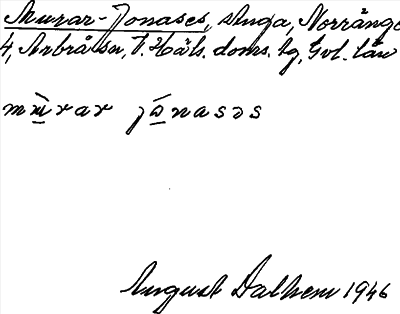 Murar-Jonases, stuga, Norränge
4, Arbrå sn, V. Häls. doms. lg, Gvl. län
mùrar jónasəs
August Dalhem 1946